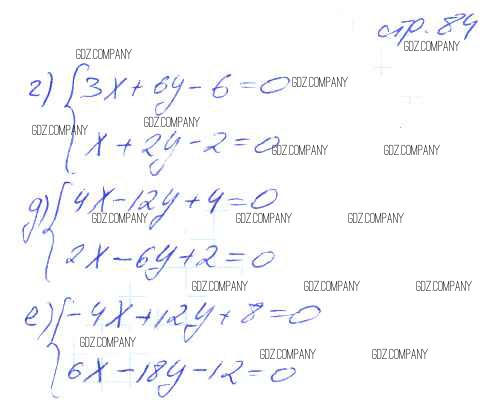 стр. 84
GDZ.COMPANY
GDZ.COMPANY
г) 3x + 6y - 6 = 0
GDZ.COMPANY
GDZ.COMPANY
GDZ.COMPANY
x + 2y - 2 = 0
GDZ.COMPANY
GDZ.COMPANY
д) 4x - 12y + 4 = 0
GDZ.COMPANY
GDZ.COMPANY
GDZ.COMPANY
2x - 6y + 2 = 0
GDZ.COMPANY
GDZ.COMPANY
GDZ.COMPANY
е) -4x + 12y + 8 = 0
GDZ.COMPANY
GDZ.COMPANY
GDZ.COMPANY
6x - 18y - 12 = 0